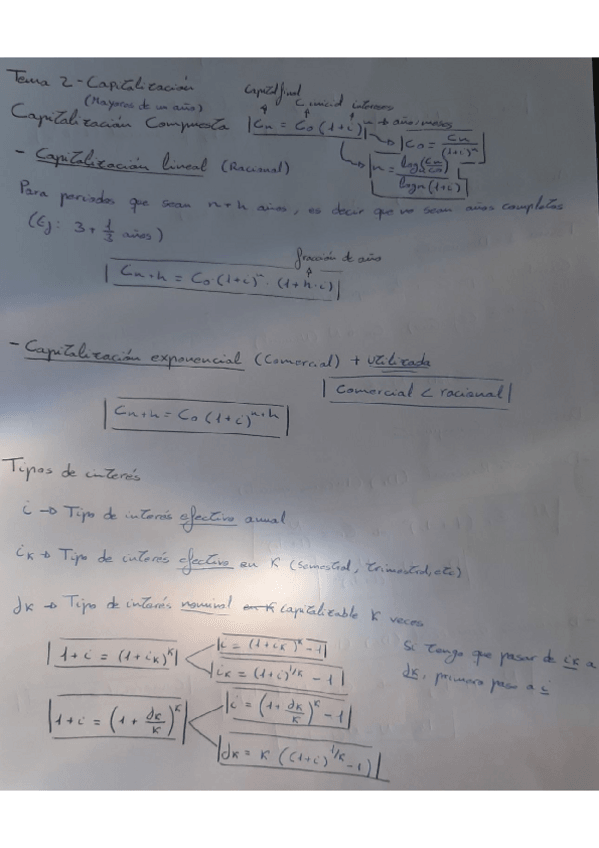 Tema 2 - Capitalización
(Mayores de un año)
Capital final
C. inicial intereses
Capitalización Compuesta |Cn = C₀ (1+i)ⁿ| → año/meses
|C₀ = Cn/(1+i)ⁿ|
|n = log(Cn/C₀)/logn(1+i)|
- Capitalización lineal (Racional)
Para periodos que sean n+h años, es decir que no sean años completos
(Ej: 3 + 1/3 años)
fracción de año
|Cn+h = C₀·(1+i)ⁿ · (1+h·i)|
- Capitalización exponencial (Comercial) + utilizada
|Comercial < racional|
|Cn+h = C₀ (1+i)ⁿ⁺ʰ|
Tipos de interés
i → Tipo de interés efectivo anual
iK → Tipo de interés efectivo en K (semestral, trimestral, etc)
JK → Tipo de interés nominal capitalizable K veces
|1+i = (1+iK)^K|
|i = (1+iK)^K - 1|
|iK = (1+i)^1/K - 1|
Si tengo que pasar de iK a
JK, primero paso a i
|1+i = (1 + JK/K)^K|
|i = (1 + JK/K)^K - 1|
|JK = K ((1+i)^1/K - 1)|